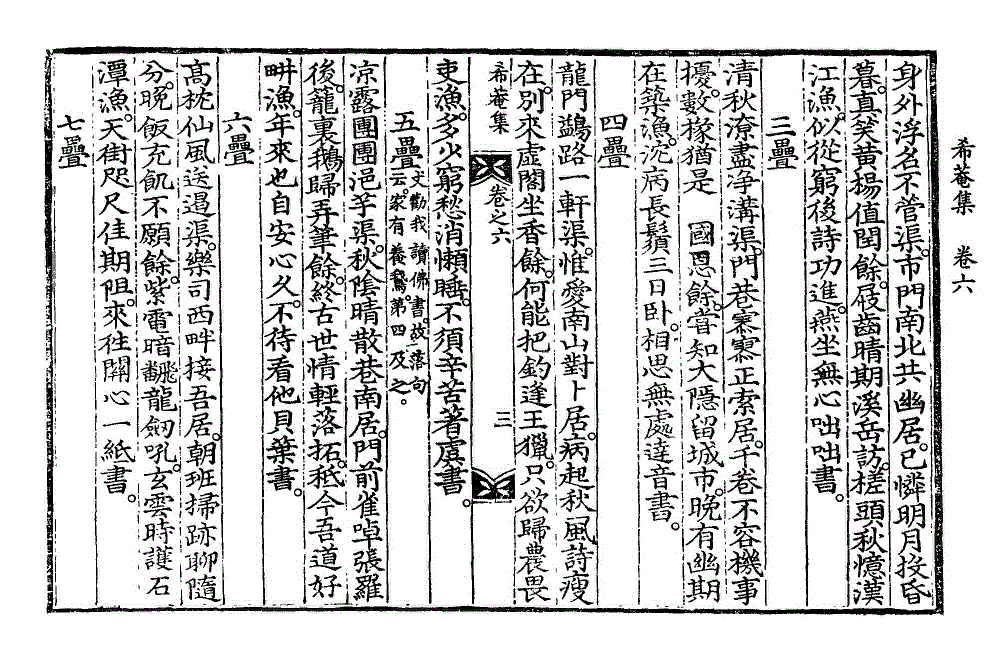 希菴集　卷六
身外浮名不管渠。市門南北共幽居。已憐明月投昏
暮。眞笑黃楊値閏餘。屐齒晴期溪岳訪。槎頭秋憶漢
江漁。似從窮後詩功進。燕坐無心咄咄書。
三疊
淸秋潦盡淨溝渠。門巷寥寥正索居。千卷不容機事
擾。數椽猶是　國恩餘。嘗知大隱留城市。晚有幽期
在築漁。沈病長鬚三日卧。相思無處達音書。
四疊
龍門鷁路一軒渠。惟愛南山對卜居。病起秋風詩瘦
在。別來虛閣坐香餘。何能把釣逢王獵。只欲歸農畏
希菴集　卷之六　三
吏漁。多少窮愁消懶睡。不須辛苦著虞書。
五疊 丈勸我讀佛書。故落句云。家有養鵝第四及之。
凉露團團浥芋渠。秋陰晴散巷南居。門前雀啅張羅
後。籠裏鵝歸弄筆餘。終古世情輕落拓。秪今吾道好
畊漁。年來也自安心久。不待看他貝葉書。
六疊
高枕仙風送過渠。樂司西畔接吾居。朝班掃跡聊隨
分。晚飯充飢不願餘。紫電暗飜龍劒吼。玄雲時護石
潭漁。天街咫尺佳期阻。來往關心一紙書。
七疊